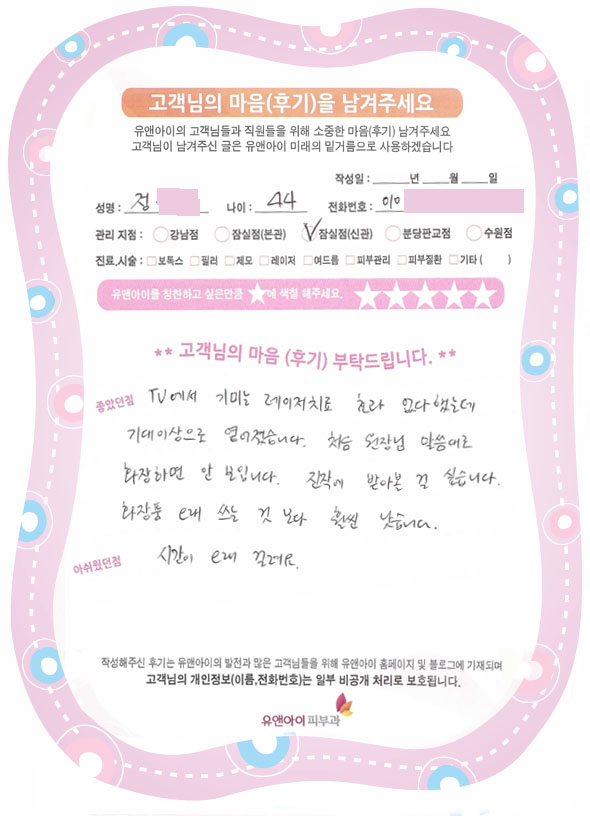 고객님의 마음(후기)을 남겨주세요
유앤아이의 고객님들과 직원들을 위해 소중한 마음(후기) 남겨주세요
고객님이 남겨주신 글은 유앤아이 미래의 밑거름으로 사용하겠습니다
작성일 : 년 월 일
성명 : 정 나이 : 44 전화번호 : 01
관리 지점 : 강남점 잠실점(본관) 잠실점(신관) 분당판교점 수원점
진료,시술 : 보톡스 필러 제모 레이저 여드름 피부관리 피부질환 기타 ( )
유앤아이를 칭찬하고 싶은만큼 ★에 색칠 해주세요. ★★★★★
** 고객님의 마음 (후기) 부탁드립니다. **
좋았던점 TV에서 기미는 레이저치료 효과 없다 했는데
기대이상으로 옅어졌습니다. 처음 원장님 말씀대로
화장하면 안 보입니다. 진작에 받아볼 걸 싶습니다.
화장품 오래 쓰는 것 보다 훨씬 낫습니다.
아쉬웠던점 시간이 오래 걸려요.
작성해주신 후기는 유앤아이의 발전과 많은 고객님들을 위해 유앤아이 홈페이지 및 블로그에 기재되며
고객님의 개인정보(이름,전화번호)는 일부 비공개 처리로 보호됩니다.
유앤아이피부과